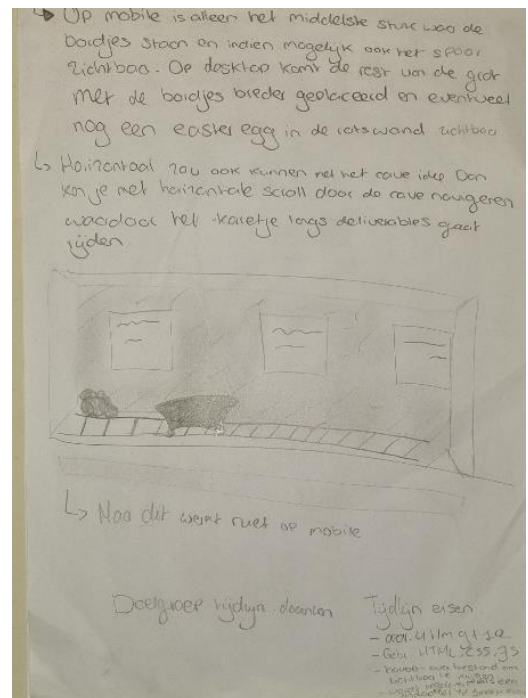 Op mobile is alleen het middelste stuk waa de
bordjes staan en indien mogelijk ook het spoor
zichtbaa. Op desktop komt de rest van de grot
met de bordjes breder geplaceerd en eventueel
nog een easter egg in de rotswand zichtbaa
Horizontaal zou ook kunnen met het cave idee Dan
kon je met horizontale scroll door de cave navigeren
waardoor het karetje langs deliverables gaat
rijden
Maa dit werkt niet op mobile
Doelgroep tijdlijn docenten
Tijdlijn eisen
- HTML, CSS, JS